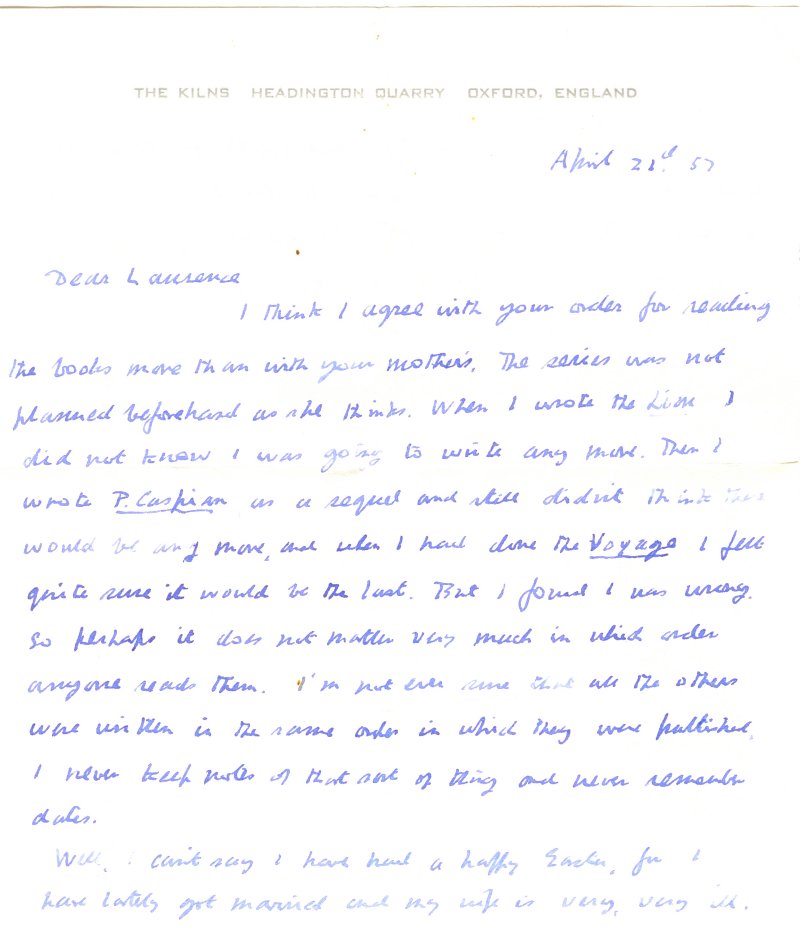 THE KILNS HEADINGTON QUARRY OXFORD, ENGLAND
April 21st. 57
Dear Laurence
I think I agree with your order for reading
the books more than with your mother's. The series was not
planned beforehand as she thinks. When I wrote the Lion I
did not know I was going to write any more. Then I
wrote P. Caspian as a sequel and still didn't think there
would be any more, and when I had done the Voyage I felt
quite sure it would be the last. But I found I was wrong.
So perhaps it does not matter very much in which order
anyone reads them. I'm not even sure that all the others
were written in the same order in which they were published.
I never keep notes of that sort of thing and never remember
dates.
Well, I can't say I have had a happy Easter, for I
have lately got married and my wife is very, very ill.